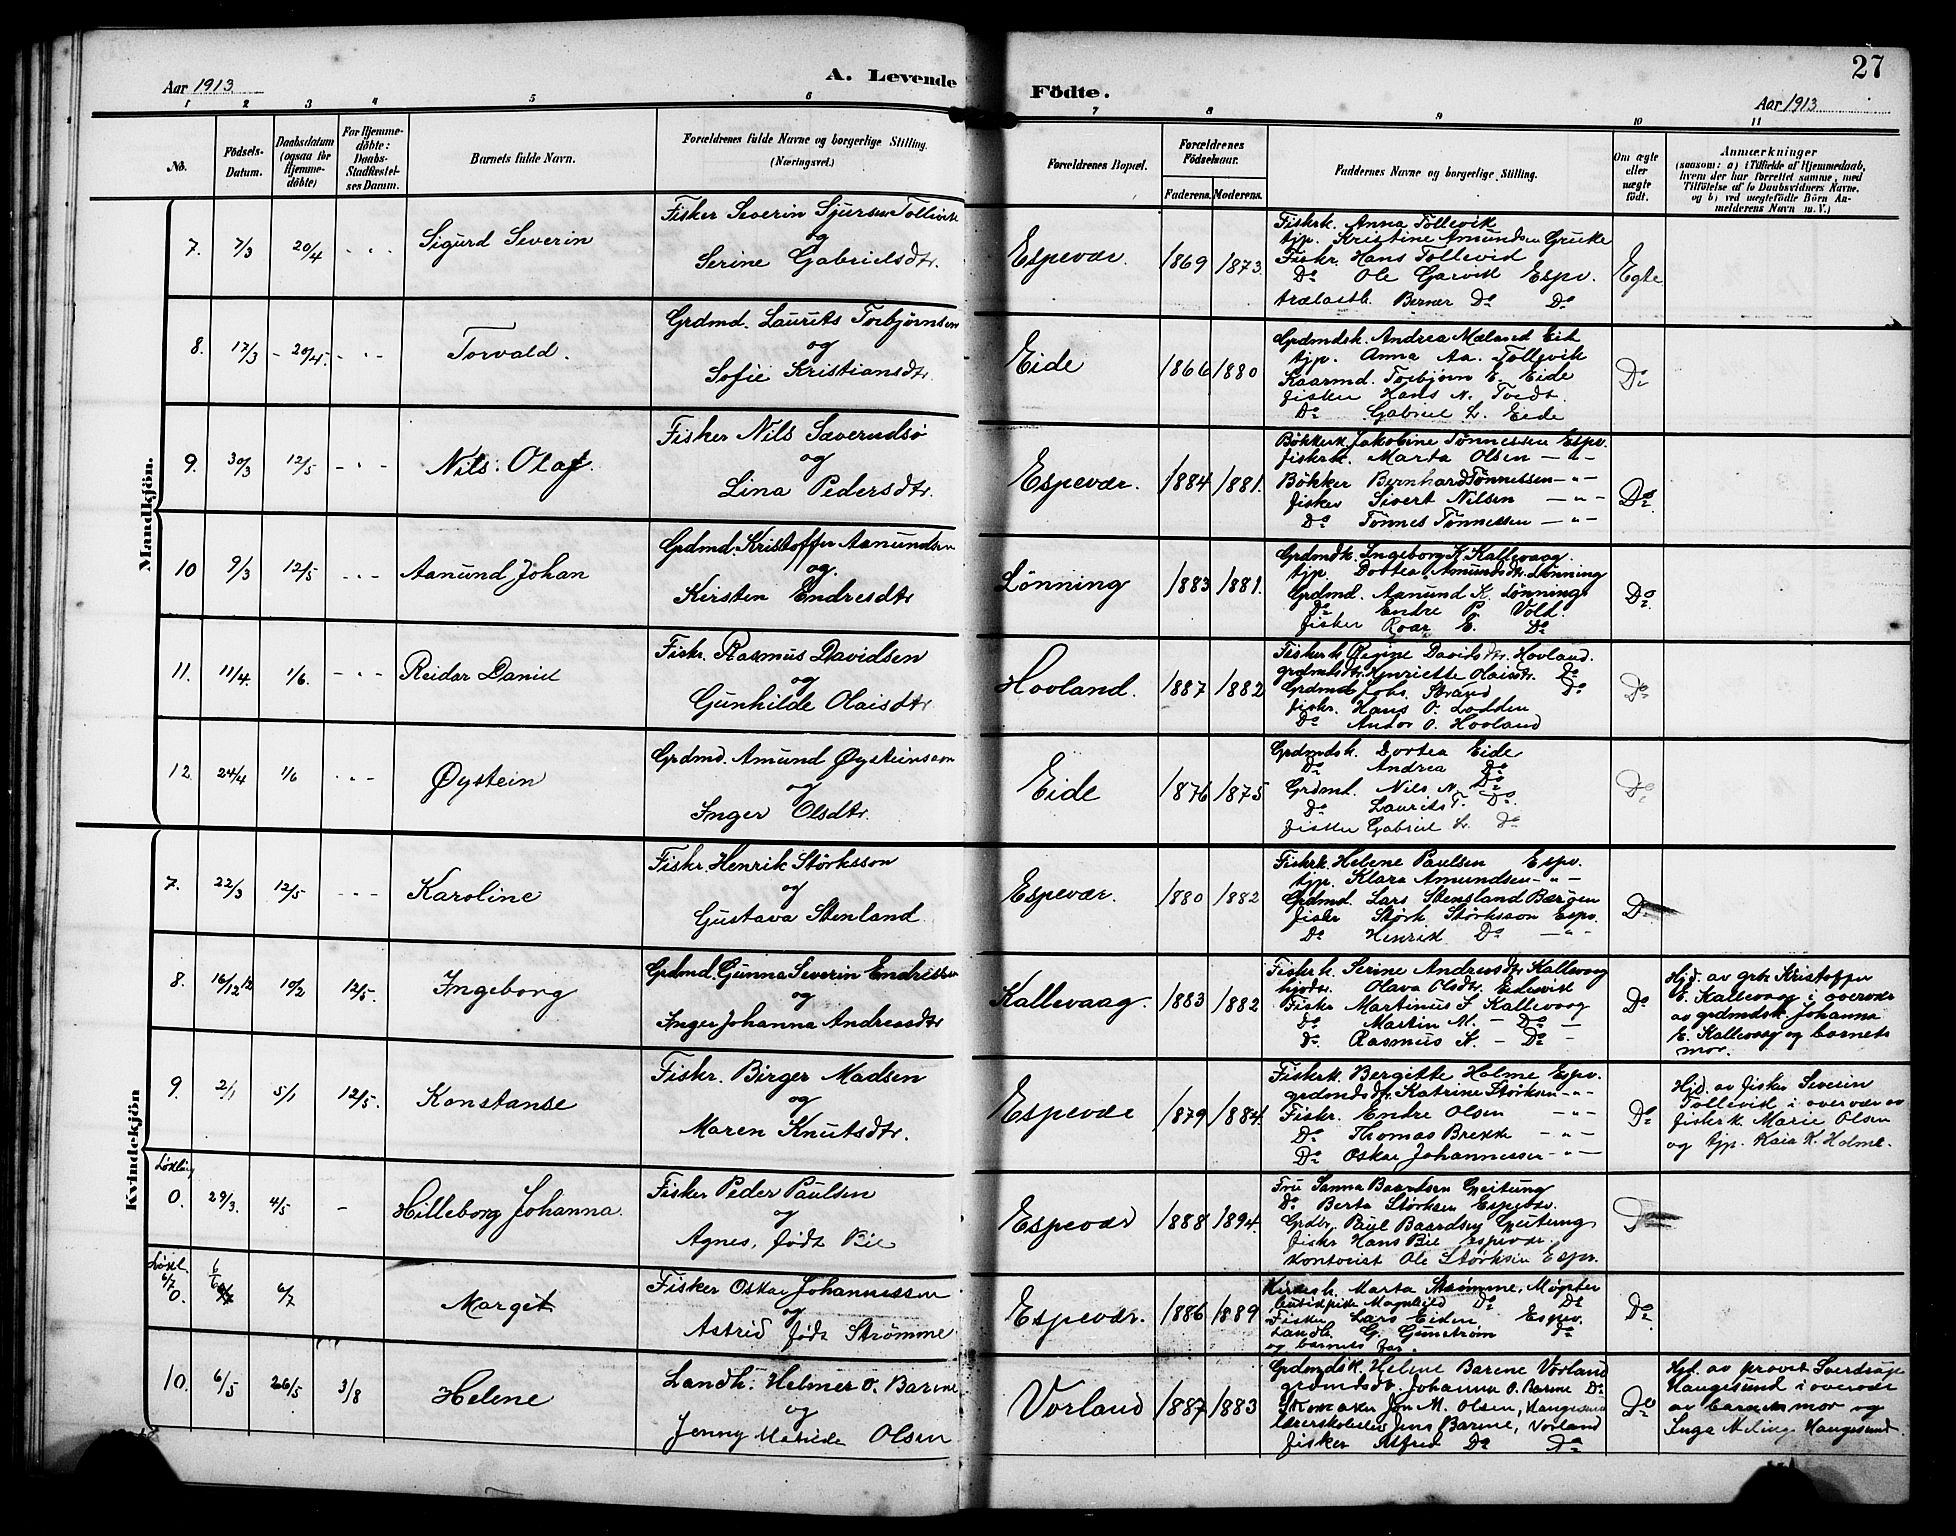 27
Aar 1913
A. Levende
Födte.
Aar 1913
1 2 3 4 5 6 7 8 9 10 11
No.
Födsels-
Datum.
Daabsdatum
(ogsaa for
Hjemme-
döbte)
For Hjemme-
döbte:
Daabs-
Stadfæstel-
ses Datum.
Barnets fulde Navn.
Forældrenes fulde Navne og borgerlige Stilling.
(Næringsvei.)
Forældrenes Bopæl.
Forældrenes
Födselsaar.
Faderens. Moderens.
Faddernes Navne og borgerlige Stilling.
Om ægte
eller
uægte
födt.
Anmærkninger
(saasom: a) i Tilfælde af Hjemmedaab,
hvem der har forrettet samme, med
Tilföielse af to Daabsvidners Navne,
og b) ved uægtefödte Börn An-
melderens Navn m. V.)
Mandkjön.
7. 7/3 20/4 - - - Sigurd Severin
Fisker Severin Sjursen Tollevik
og
Serine Gabrielsdtr.
Espevær. 1869 1873.
Fiskerk. Anna Tollevik
tjp. Kristine Amundsen Grucke
Fiskr. Hans Tollevid
Do Ole Garvik Espv.
trælastk. Berner Do Do
Egte
8. 17/3 - 20/4 - - - Torvald.
Grdmd. Laurits Torbjørnsen
og
Sofie Kristiansdtr.
Eide 1866 1880
Grdmdsk. Andrea Mæland Eid
tjp. Anna Aa. Tollevik
Kaarmd. Torbjørn E. Eide
fisker Hans N. Tvedt.
Do Gabriel L. Eide
Do
9. 30/3 12/5 - - - Nils Olaf.
Fisker Nils Sæverudsø
og
Lina Pedersdtr.
Espevær. 1884 1881.
Bøkkerk. Jakobine Tønnessen Espv.
fiskerk. Marta Olsen - " -
Bøkker Bernhard Tønnessen - " -
fisker Sivert Nilsen - " -
Do Tønnes Tønnessen - " -
Do
10 9/3 12/5 - - - Aanund Johan
Grdmd. Kristoffer Aanundsen
og.
Kirsten Endresdtr
Lønning 1883 1881.
Grdmdk. Ingeborg K. Kallevaag.
tjp. Dortea Amundsdtr. Lønning
Grdmd. Aanund K. Lønning
Do Endre P. Vold.
fisker Roar E. Do
Do
11. 11/4. 1/6. - - - Reidar Daniel
Fiskr. Rasmus Davidsen
og
Gunhilde Olaisdtr
Hovland. 1887 1882
Fiskerk. Regine Davidsdtr. Hovland.
grdmdsdtr. Henriette Olaisdtr. Do
Grdmd. Johs. Strand Do
fiskr. Hans O. Lodden
Do Andor O. Hovland
Do
12. 24/4 1/6 - - - Øystein
Grdmd. Amund Øysteinson
og
Inger Olsdtr.
Eide 1876 1875
Grdmdsk. Dortea Eide
Do Andrea Do
Grdmd. Nils N. Do
Do Laurits T. Do.
fisker Gabriel L. Do
Do
Kvindekjön
7. 22/3 12/5 - - - Karoline
Fiskr. Henrik Størksson
og
Gustava Stenland.
Espevær. 1880 1882
Fiskrk. Helene Paulsen Espv.
tjp. Klara Amundsen - " -
Grdmd. Lars Stensland Bærøen
fiskr Størk Størksson Espv.
Do Henrik Do - " -
Do
8. 16/12 12 10/2 12/5. Ingeborg
Grdmd. Gunna Severin Endresen
og
Inger Johanna Andreasdtr
Kallevaag. 1883 1882
Fiskerk. Serine Andreasdtr. Kallevaag
Olava Olsdtr. Eidevik
Fisker Martinus S. Kallevaag
Do Martin M. - Do -
Do. Rasmus K. - Do -
Do
Hjd. av grbr. Kristoffer
E. Kallevaag i overvær
av grdmdsk. Johanna
E. Kallevaag og barnets
mor.
9. 2/1 5/1 12/5. Konstanse
Fiskr. Birger Madsen
og
Maren Knutsdtr.
Espevær 1879 1884.
Fiskerk. Bergitte Holme Espv.
grdmdsdtr. Katrine Størksen - " -
Fiskr. Endre Olsen - " -
Do Thomas Brekk - " -
Do Oskar Johannessen - " -
Do
Hjd. av fisker Severin
Tollevid i overvær av
fiskerk. Marie Olsen
og tjp. Kaia K. Holme.
0. 29/3. 4/5 - Hilleborg Johanna
Fisker Peder Paulsen
og
Agnes, født Bie
Espevær 1888 1894.
Fru Sanna Baardsen Geitung
Do Berta Størksen Espevær.
Grdbr. Paul Baardsen Geitung
fiskr Hans Bie Espevær.
Kontorist Ole Størksen Espv.
Do
6/7 0. 6/6 6/7 Margit
Fisker Oskar Johannessen
og
Astrid født Strømme
Espevær. 1886 1889
Marta Strømme, Møgster
Magnhild Do Do
Fisker Lars Eiden Espev.
Landh. G. Gunstrøm Do
og barnets far.
Do
10. 6/5 26/5 3/8 Helene
Landh. Helmer O. Barene
og
Jenny Matilde Olsen
Vorland 1887 1883
Grdmdsk. Helene Barene Vorland
grdmdsdtr. Johanna O. Barene Do
Skomaker Jon M. Olsen, Haugesund
lærerskoleelev Jens Barene, Vorland
fisker Alfred Do Do
Do
Hjd. av provst Sverdrup
Haugesund i overvær
av barnets mor og
Inga Meling Haugesund.